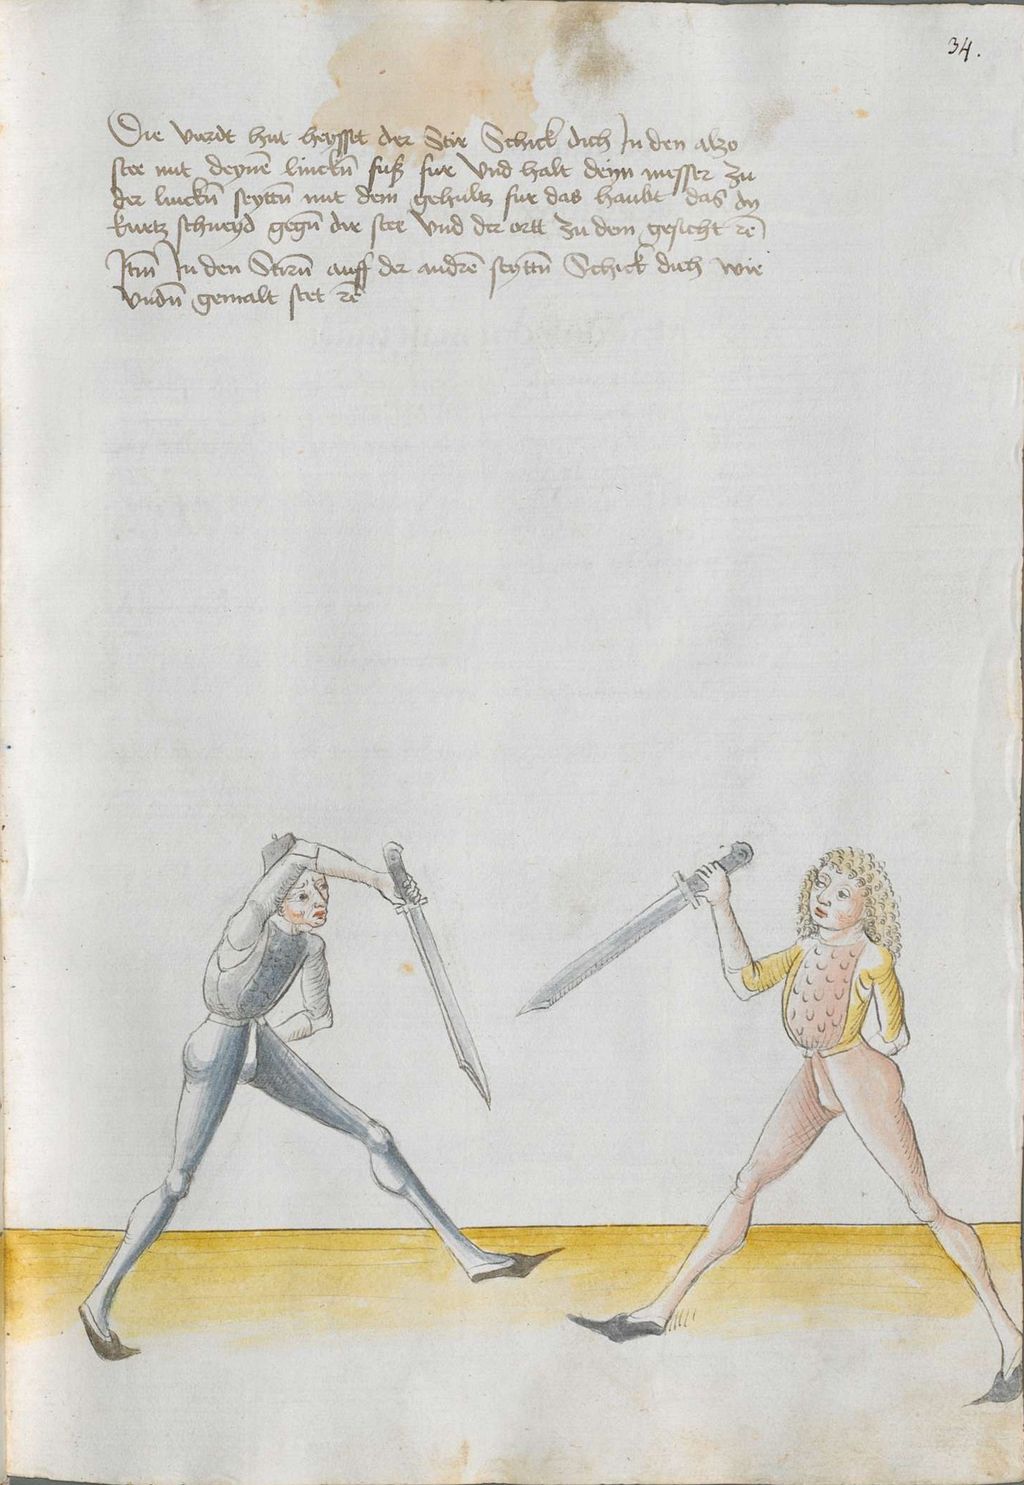 34.
Die vierdt hut heysset der Stir Schick dich In den alzo
stee mit deynē linckñ fuß fur vnd halt deyn messer zu
der linckñ seyttñ mit dem gehultz fur das haubt das dy
kurtz schneyd gegñ dir stee vnd der ortt zu dem gesicht rē
Itm̄ In den Stirñ auff der andrē seyttñ Schick dich wie
vndñ gemalt stet rē